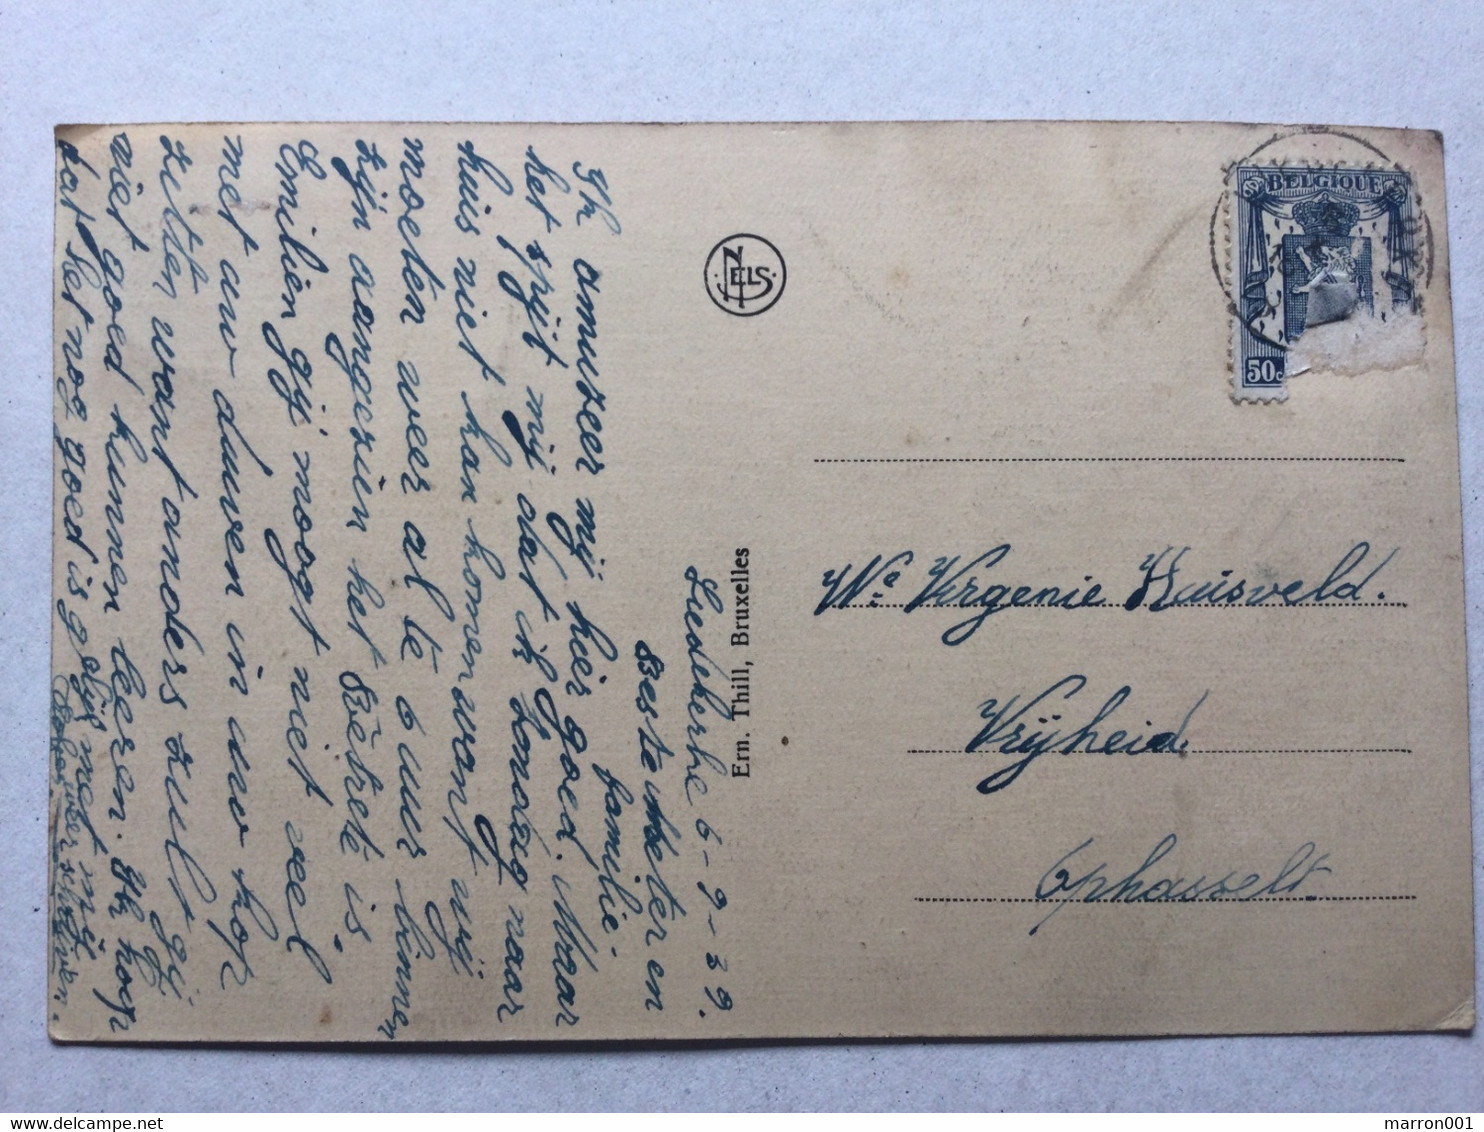 Liedekerke 6-9-39.
Beste meter en
familie.
Ik amuzeer mij hier goed. Maar
het spijt mij dat ik Zondag naar
huis niet kan komen want wij
moeten weer al te 6 uur binnen
zijn aangezien het Svètreté is.
Emilien gij moogt niet veel
met uw duwen in uw kop
zitten want anders zult gij
niet goed kunnen leeren. Ik hoop
dat het nog goed is gelijk met mij
schrijven.
Ern. Thill, Bruxelles
NELS
BELGIQUE
50c
We Virgenie Huisveld.
Vrijheid.
Ophasselt.
marron001